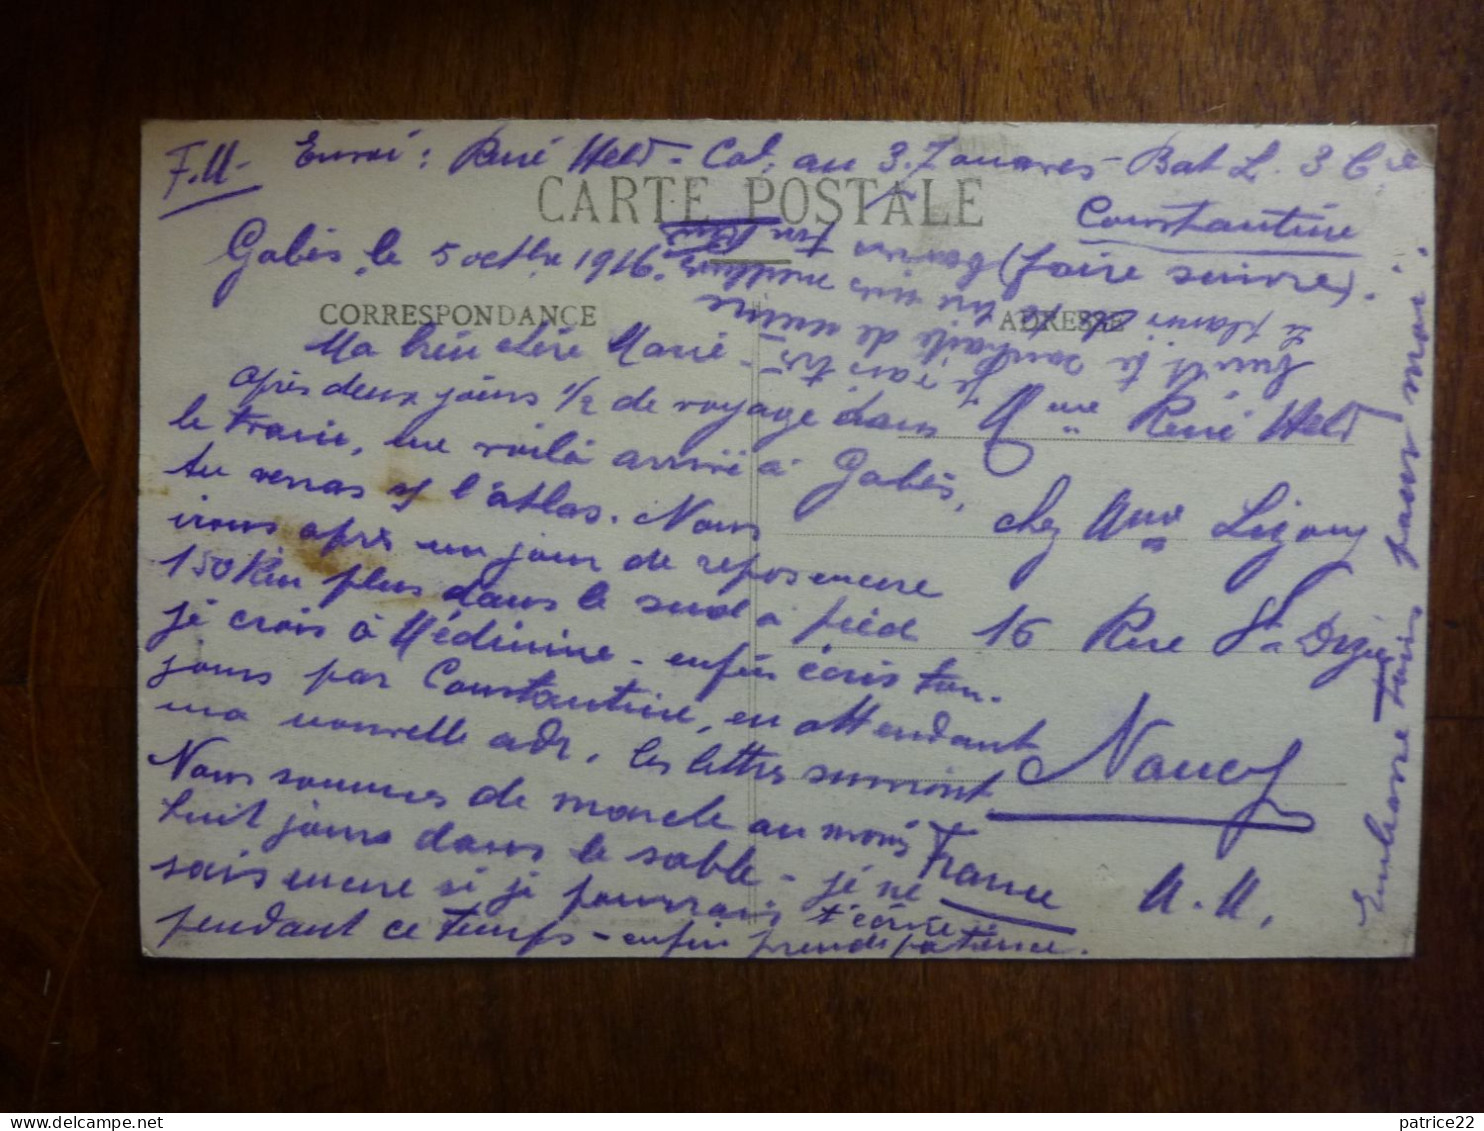 F.M- Envoi : René Held - Cal. au 3. Zouaves - Bat L. 3 Cie
CARTE POSTALE
Constantine
(faire suivre).
Gabès, le 5 octbre 1916.
CORRESPONDANCE
ADRESSE
Ma bien chère Marie -
Après deux jours 1/2 de voyage dans
le train, me voilà arrivé à Gabès,
tu verras l'atlas. Nous
irons après un jour de repos encore
150 Km plus dans le sud à pied
je crois à Médenine - enfin écris tou-
jours par Constantine, en attendant
ma nouvelle adr. les lettres suivront
Nous sommes de marche au moins
huit jours dans le sable - je ne
sais encore si je pourrais t'écrire
pendant ce temps - enfin prends patience.
Mme René Held
chez Mme Ligony
16 Rue St Dizier
Nancy
France M.M.
Embrasse tous pour moi.
je vais très
bien et te souhaite de même
patrice22